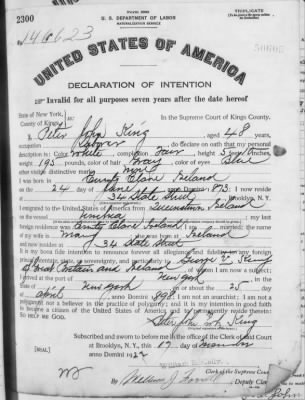 TRIPLICATE
2300
U. S. DEPARTMENT OF LABOR
NATURALIZATION SERVICE
140623
UNITED STATES OF AMERICA
DECLARATION OF INTENTION
Invalid for all purposes seven years after the date hereof
State of New York,
County of Kings, ss:
In the Supreme Court of Kings County.
I, Peter John King, aged 48 years,
occupation Laborer, do declare on oath that my personal
description is: Color White, complexion Fair, height 5 feet inches,
weight 195 pounds, color of hair Gray, color of eyes Blue
other visible distinctive marks none
I was born in County Clare Ireland
on the 24 day of June, anno Domini 1873; I now reside
at 34 State Street, Brooklyn, N.Y.
I emigrated to the United States of America from Queenstown Ireland
on the vessel; my last
foreign residence was County Clare Ireland; I am married; the name
of my wife is Mary; she was born at Ireland
and now resides at 34 State Street
It is my bona fide intention to renounce forever all allegiance and fidelity to any foreign
prince, potentate, state, or sovereignty, and particularly to George V. King
of Great Britain and Ireland, of whom I am now a subject;
I arrived at the port of New York, in the
State of New York, on or about the 25 day
of April, anno Domini 1898; I am not an anarchist; I am not a
polygamist nor a believer in the practice of polygamy; and it is my intention in good faith
to become a citizen of the United States of America and to permanently reside therein:
SO HELP ME GOD.
Peter John King
Subscribed and sworn to before me in the office of the Clerk of said Court
[SEAL] at Brooklyn, N.Y., this 17 day of
anno Domini 1922
Clerk of the Supreme Court.
By William J., Deputy Clerk
John